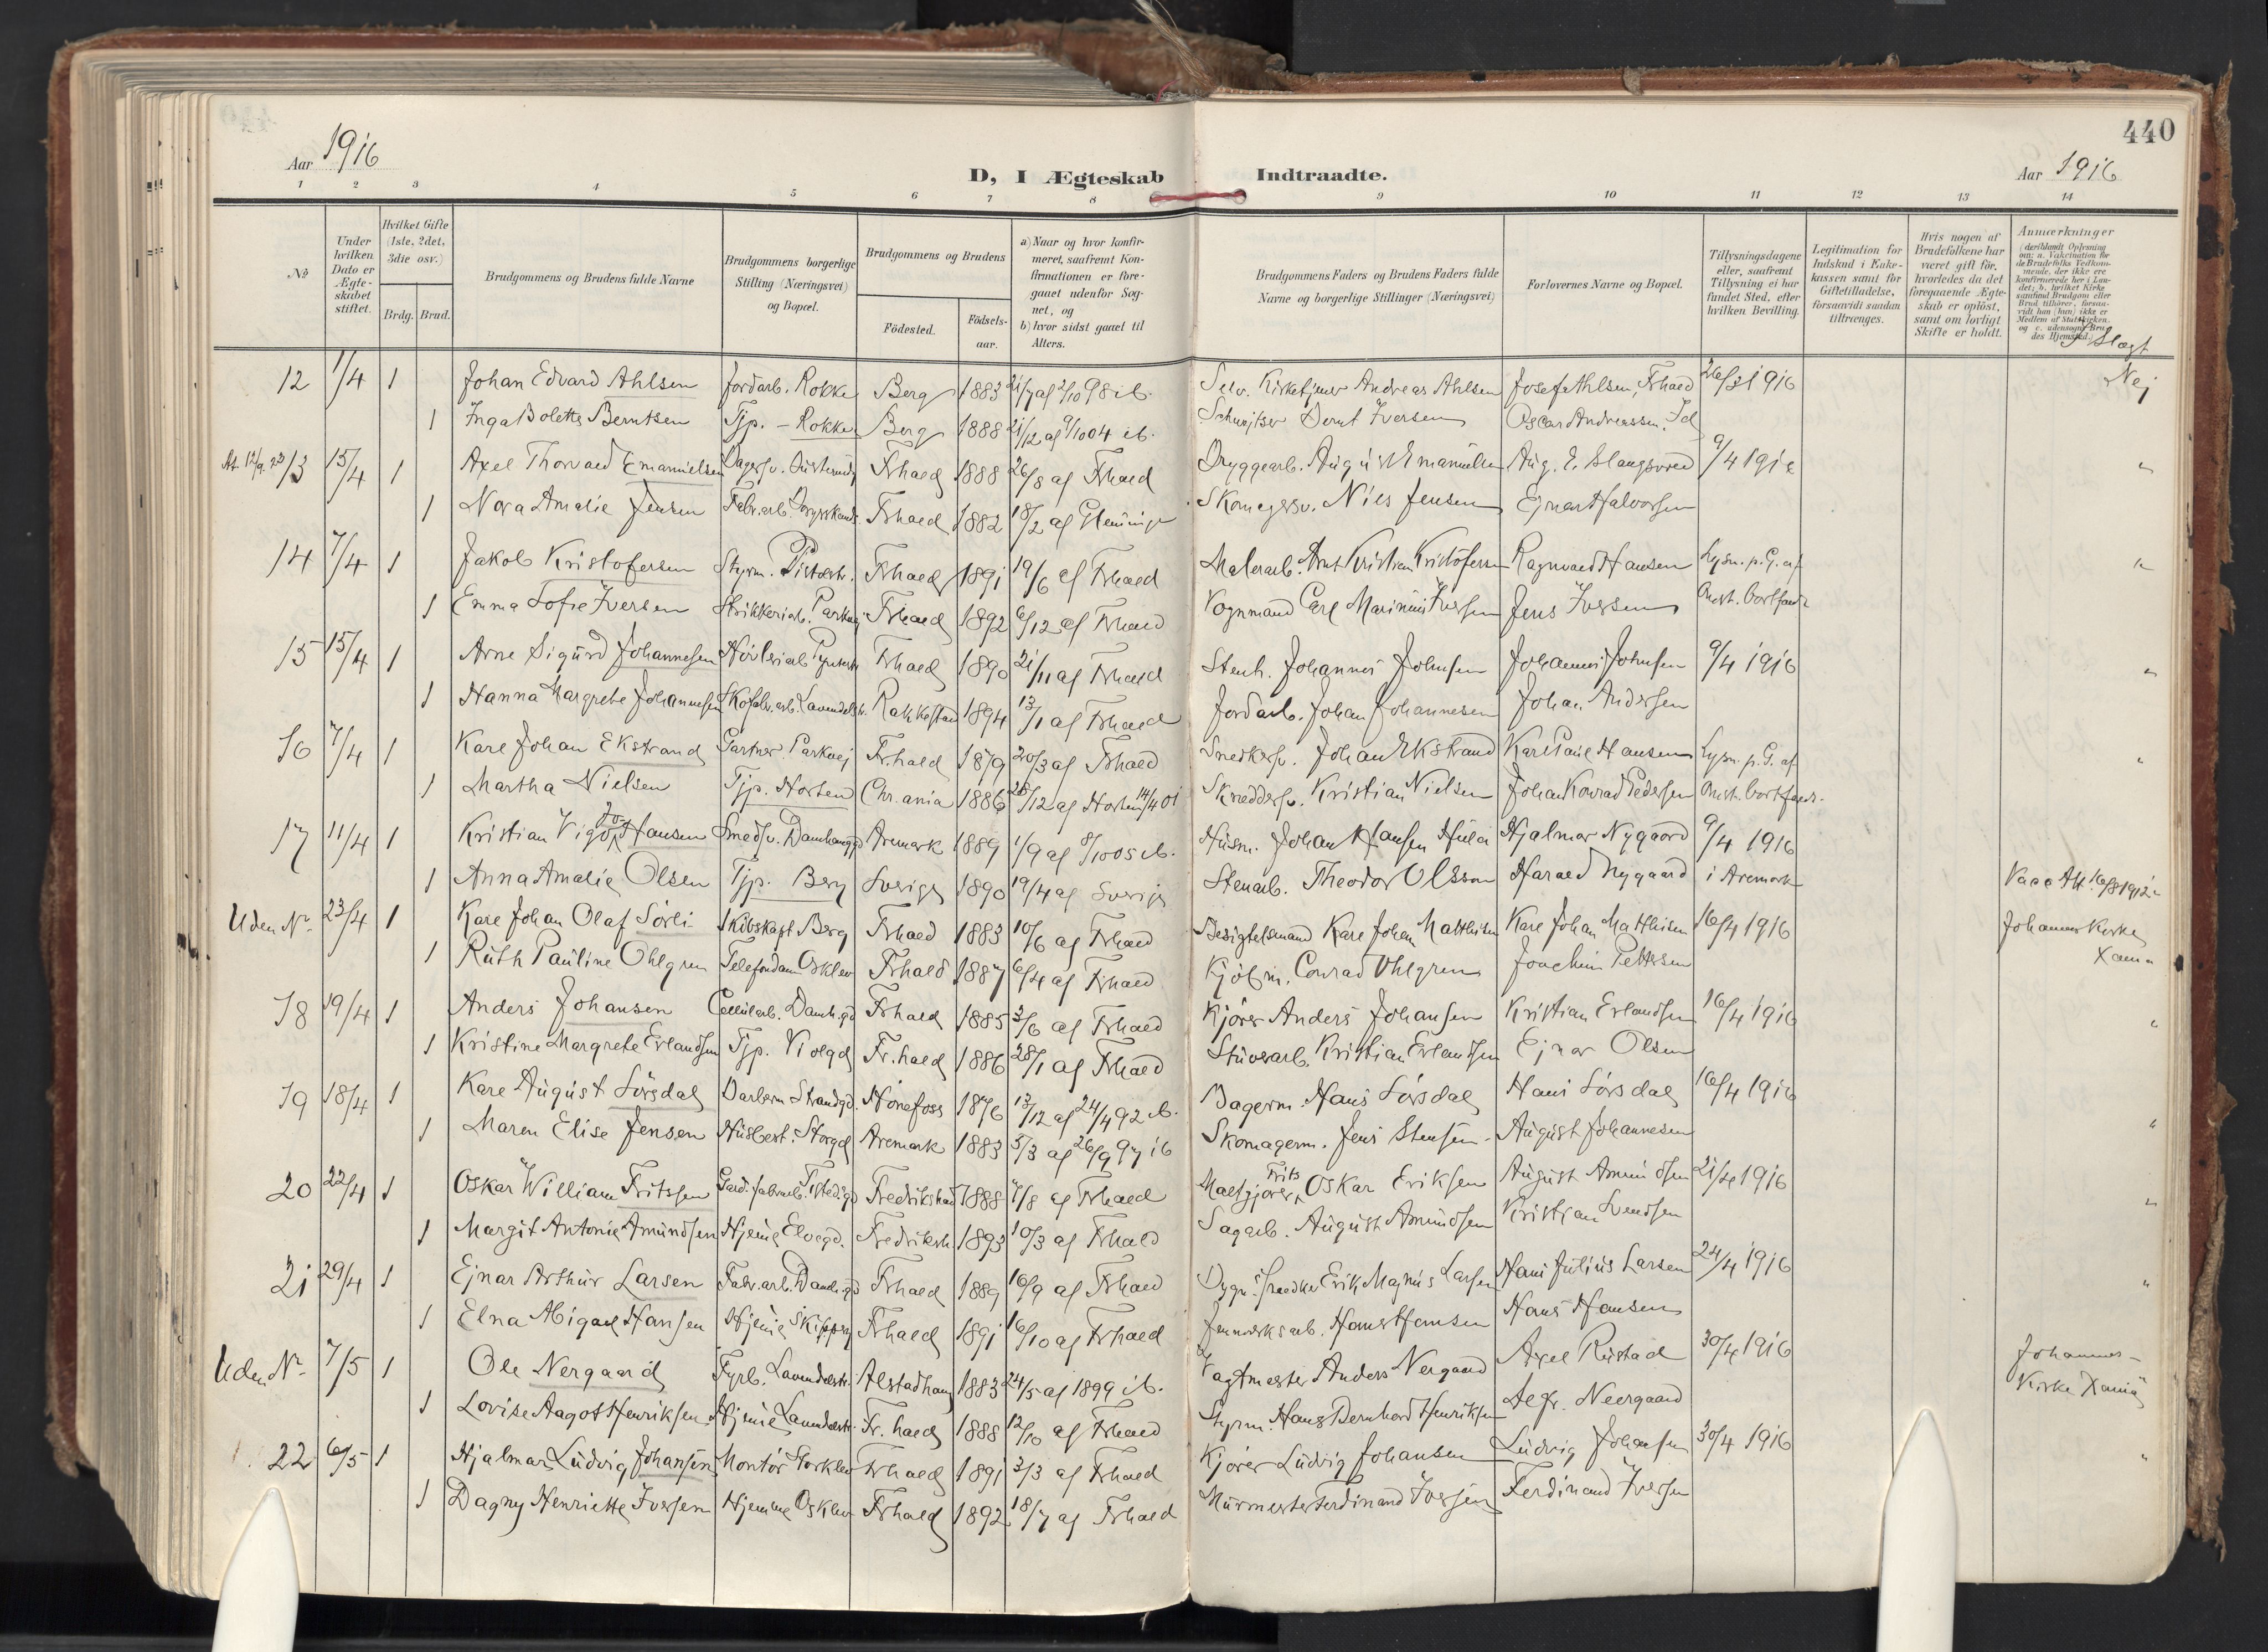 440
Aar 1916
D, I Ægteskab Indtraadte.
Aar 1916
1 2 3 4 5 6 7 8 9 10 11 12 13 14
№
Under hvilken Dato er Ægteskabet stiftet.
Hvilket Gifte (1ste, 2det, 3die osv.)
Brdg. Brud.
Brudgommens og Brudens fulde Navne
Brudgommens borgerlige Stilling (Næringsvei) og Bopæl.
Brudgommens og Brudens
Födested.
Födsels-aar.
a) Naar og hvor konfirmeret, saafremt Konfirmationen er foregaaet udenfor Sognet, og
b) hvor sidst gaaet til Alters.
Brudgommens Faders og Brudens Faders fulde Navne og borgerlige Stillinger (Næringsvei)
Forlovernes Navne og Bopæl.
Tillysningsdagene eller, saafremt Tillysning ei har fundet Sted, efter hvilken Bevilling.
Legitimation for Indskud i Enkekassen samt for Giftetilladelse, forsaavidt saadan tiltrænges.
Hvis nogen af Brudefolkene har været gift för, hvorledes da det foregaaende Ægteskab er oplöst, samt om lovligt Skifte er holdt.
Anmærkninger
Slægt
12 1/4 1 Johan Edvard Ahlsen Jordarb. Rokke Berg 1883 98 Kirketjener Andreas Ahlsen Josef Athlsen, Frhald 26/3 1916 Nej
1 Inga Bolette Berntsen Tjp. - Rokke Berg 1888 Bernt Iversen Oscar Andreassen. Id
13 15/4 1 Axel Thorvald Emanuelsen Frhald 1888 26/8 af Frhald Bryggearb. August Emanuelsen Aug. E. 9/4 1916 "
1 Nora Amalie Jensen Fabr.arb. Frhald 1882 18/2 af Glemminge Nils Jensen Ejnar Halvorsen
14 7/4 1 Jakob Kristofersen Styrm. Frhald 1891 19/6 af Frhald Malerarb. Kristian Kristofersen Ragnvald Hansen Lysn. p. G. af "
1 Emma Sofie Iversen Parkvej Frhald 1892 6/12 af Frhald Vognmand Carl Marinius Iversen Jens Iversen Anst. bortfard
15 15/4 1 Arne Sigurd Johannesen Frhald 1890 21/11 af Frhald Stenh. Johannes Johnsen Johannes Johnsen 9/4 1916 "
1 Hanna Margrete Johannesen Skofabr.arb. Lavendelstr. Rakkestad 1894 13/1 af Frhald Jordarb. Johan Johannesen Johan Andersen
16 7/4 1 Karl Johan Ekstrand Gartner Parkvej Fr.hald 1879 20/3 af Frhald Snedkersv. Johan Ekstrand Karl Hansen Lysn. p. G. af "
1 Martha Nielsen Tjp. Horten Chr.ania 1886 28/12 af Horten 14/4 01 Skreddersv. Kristian Nielsen Johan Konrad Pedersen Anst. bortfard.
17 11/4 1 Kristian Vigo Hansen Smedsv. Damhaugg. Aremark 1889 1/9 af 8/10 05 ib. Husm. Johan Hansen Hjalmar Nygaard 9/4 1916
1 Anna Amalie Olsen Tjp. Berg Sverige 1890 19/4 af Sverige Stenarb. Theodor Olsson Harald Nygaard i Aremark Vacc Att. 16/8 1912
Uden Nr. 23/4 1 Karl Johan Olaf Sørli Skibskapt Berg Frhald 1883 10/6 af Frhald Besigtelsmand Karl Johan Mathisen Karl Johan Mathisen 16/4 1916 Johannes Kirke
1 Ruth Pauline Ohlgren Telefondame Osklev Frhald 1887 6/4 af Frhald Kjøbm. Conrad Ohlgren Joachim Pettersen Xania
18 19/4 1 Anders Johansen Damh.gd Frhald 1885 3/6 af Frhald Kjører Anders Johansen Kristian Erlandsen 16/4 1916 "
1 Kristine Margrete Erlandsen Tjp. Volgd Fr.hald 1886 28/1 af Frhald Stuverarb. Kristian Erlandsen Ejnar Olsen
19 18/4 1 Karl August Sørsdal Barberm Strandgd. Hønefoss 1876 13/12 af 24/4 92 ib. Bagerm. Hans Sørsdal Hans Sørsdal 16/4 1916
1 Maren Elise Jensen Husbest. Storgd Aremark 1883 5/3 af 26/9 97 ib Skomagerm. Jens August Johannesen "
20 22/4 1 Oskar William Fritssen Fredrikshald 1888 7/8 af Frhald Frits Oskar Eriksen August Amundsen 21/4 1916
1 Margit Antonie Amundsen Hjeme Elvegd. Fredriksh 1893 10/3 af Frhald Sagarb. August Amundsen Kristian Svendsen "
21 29/4 1 Ejnar Arthur Larsen Fabr.arb. Damh.gd Frhald 1889 16/9 af Frhald Erik Magnus Larsen Hans Julius Larsen 24/4 1916 "
1 Elna Abigael Hansen Hjeme Frhald 1891 16/10 af Frhald Hans Hansen Hans Hansen
Uden Nr. 7/5 1 Ole Nergaard Fyrb. Lavendelstr. Alstadhaug 1883 24/5 af 1899 ib. Vagtmester Anders Nergaard Axel Rustad 30/4 1916 Johannes-
1 Lovise Aagot Henriksen Hjeme Lavendelstr. Fr.hald 1888 12/10 af Frhald Styrm. Hans Bernhard Henriksen Neergaard Kirke Xania
22 6/5 1 Hjalmar Ludvig Johansen Montør Frhald 1891 3/3 af Frhald Kjører Ludvig Johansen Ludvig Johansen 30/4 1916 "
1 Dagny Henriette Iversen Hjemme Osklev Frhald 1892 18/7 af Frhald Murmester Ferdinand Iversen Ferdinand Iversen